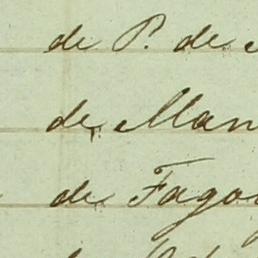 de P. de
de Man
de Fago